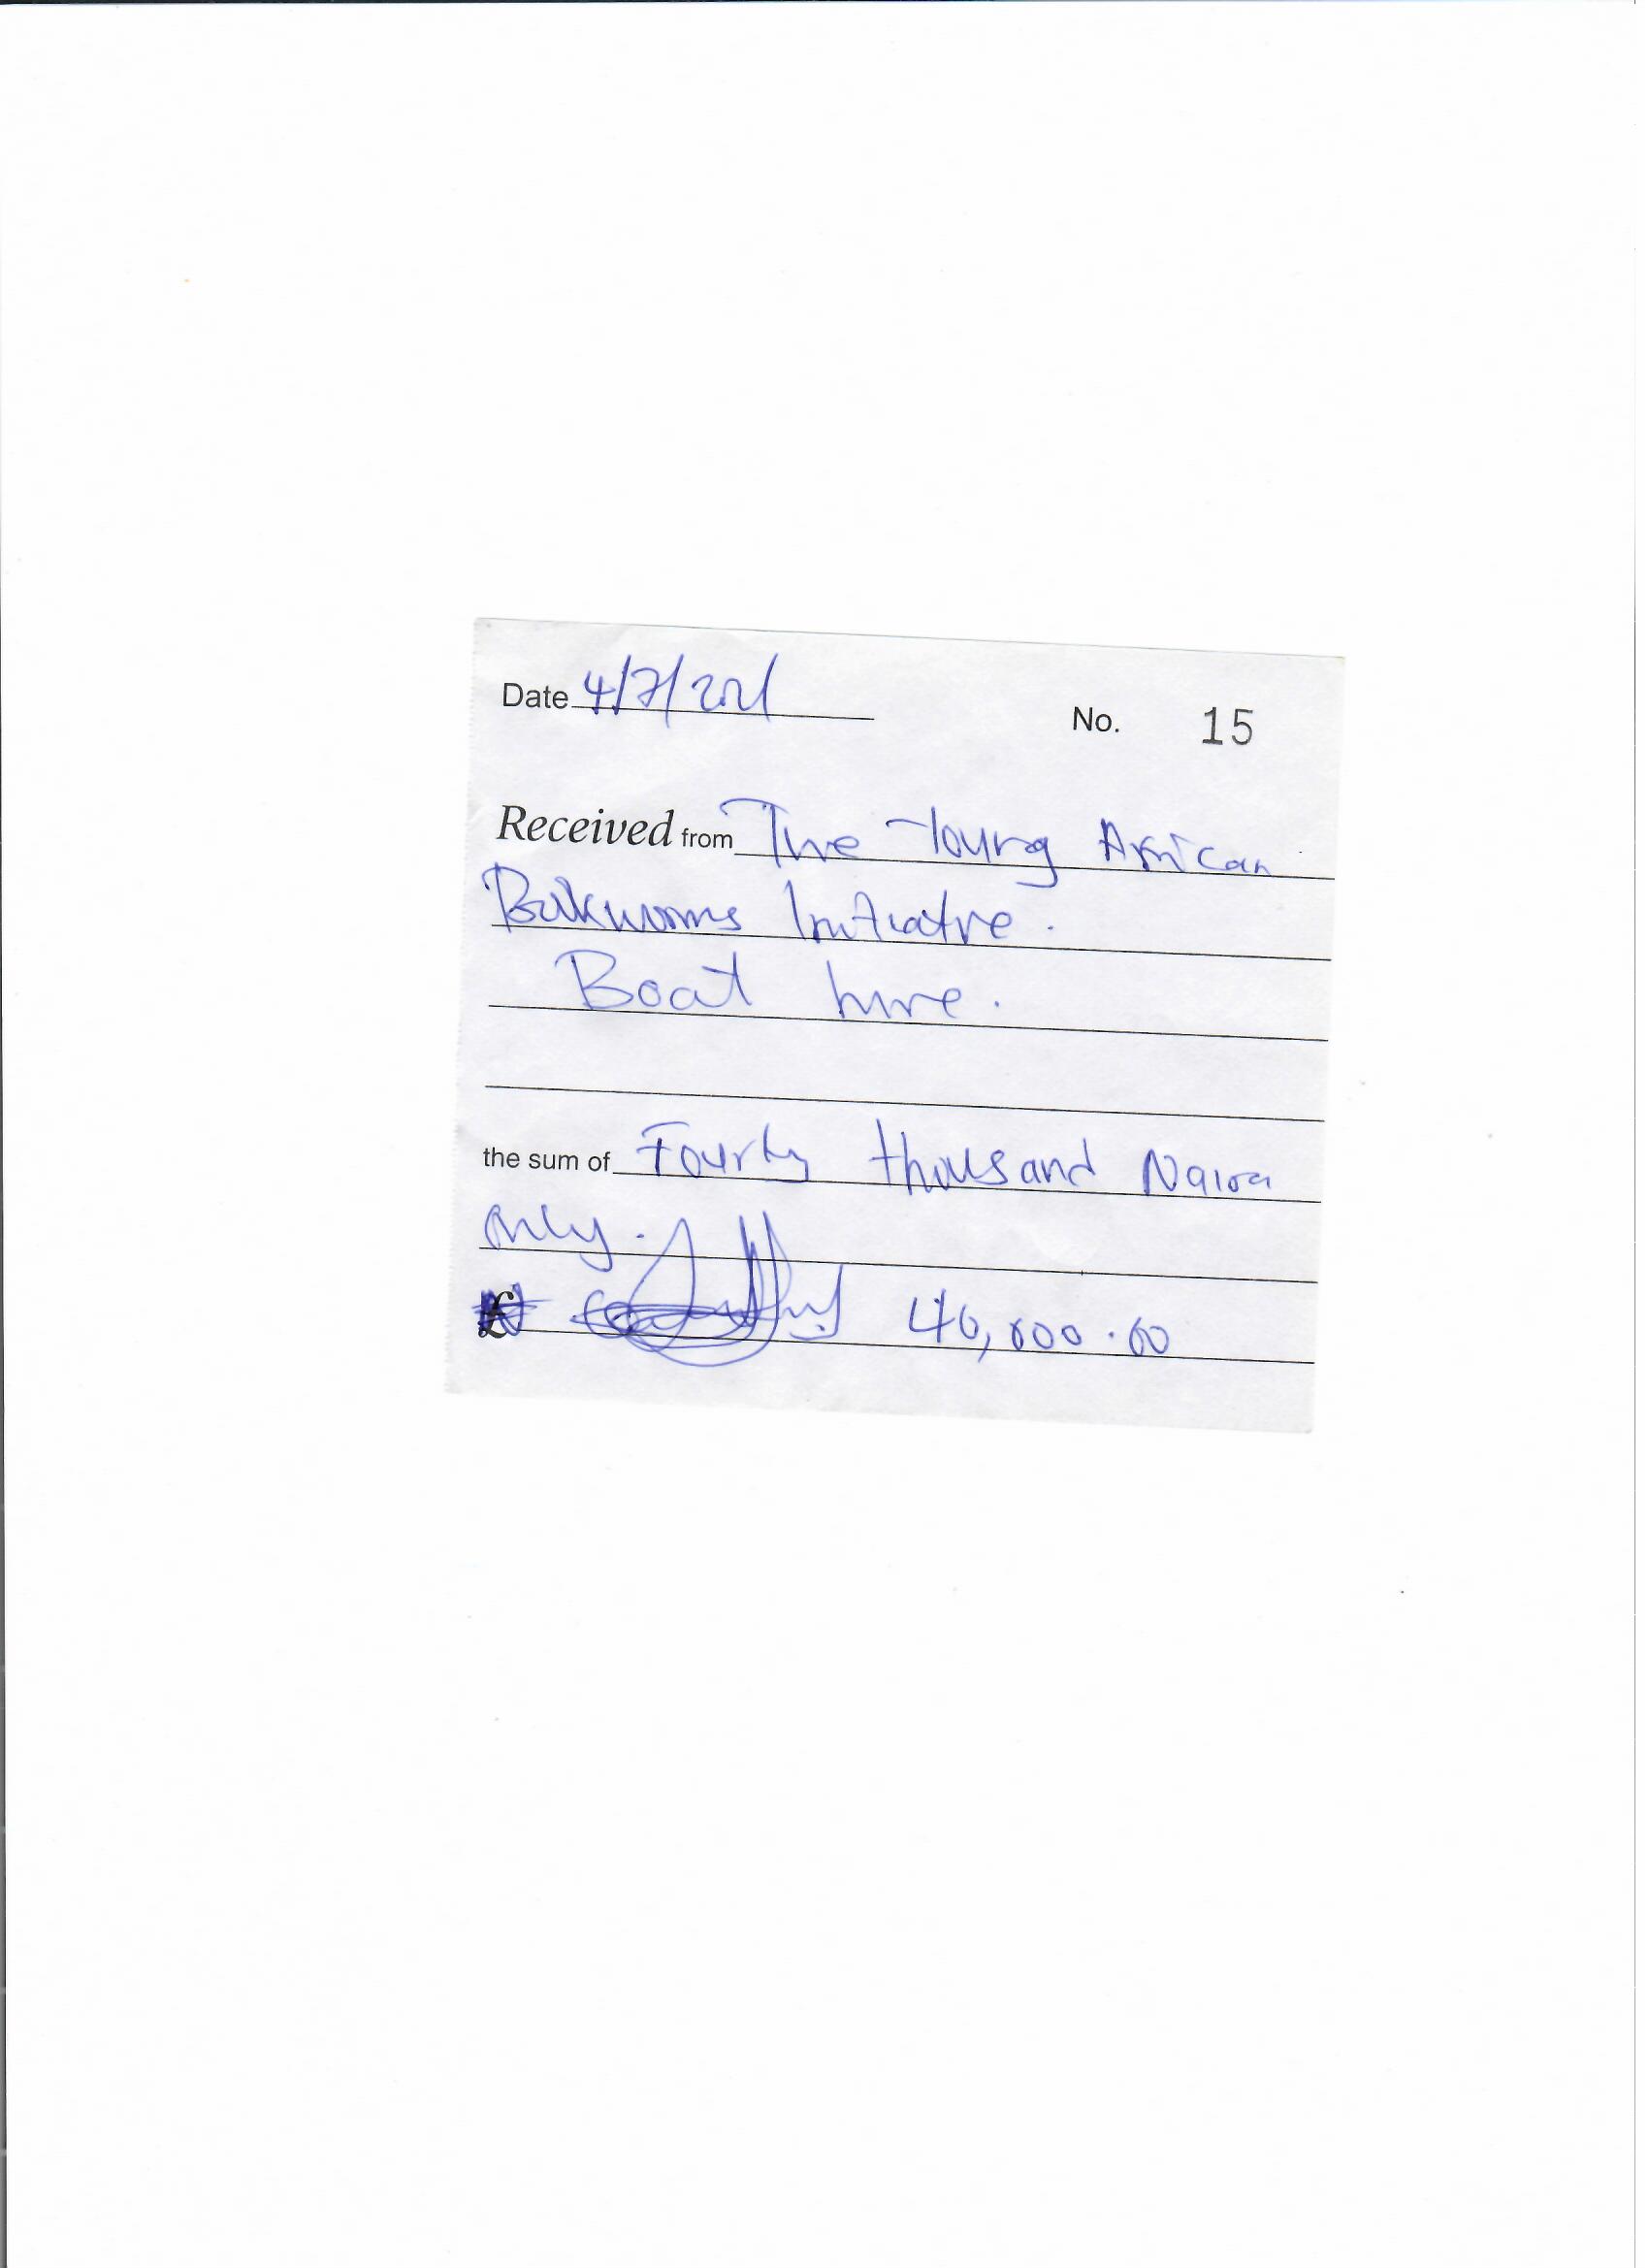 Date 4/7/2021
No. 15
Received from The Young African
Bukworms Initiative.
Boat hire.
the sum of Fourty thousand Naira
only.
£ 40,000.00